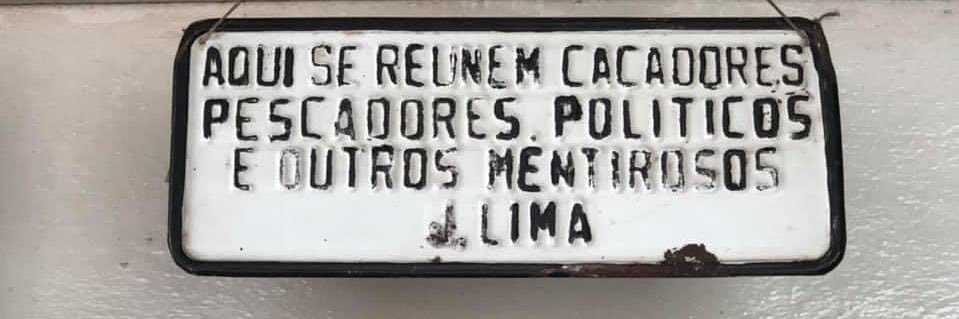 AQUI SE REUNEM CACADORES,
PESCADORES, POLITICOS
E OUTROS MENTIROSOS
J. LIMA